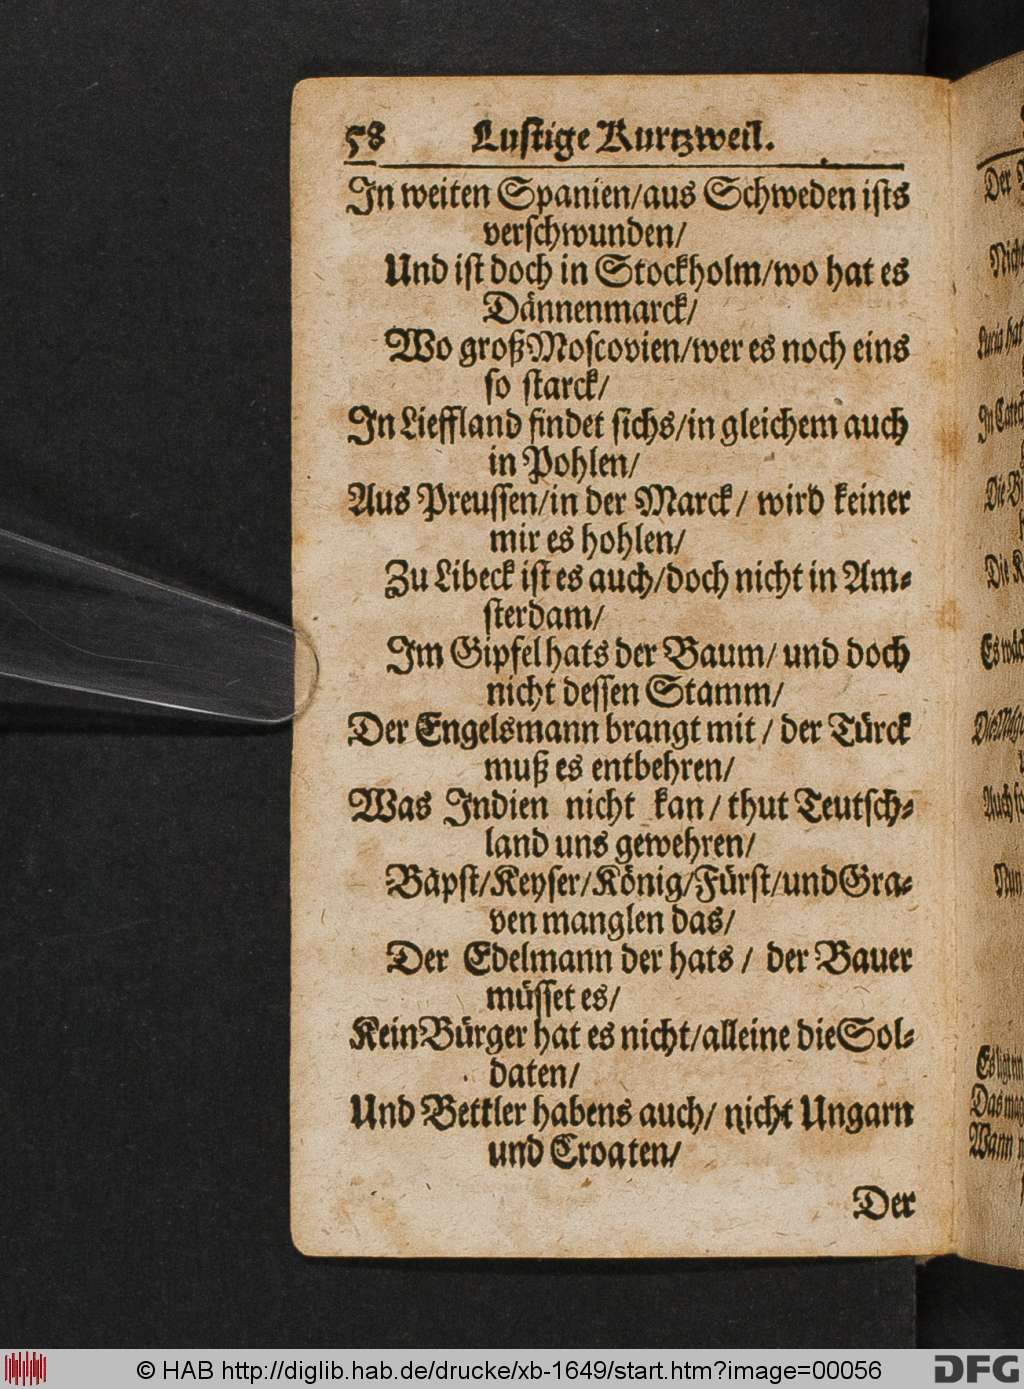 58 Lustige Kurtzweil.
In weiten Spanien/aus Schweden ists
verschwunden/
Und ist doch in Stockholm/wo hat es
Dännenmarck/
Wo groß Moscovien/wer es noch eins
so starck/
In Lieffland findet sichs/in gleichem auch
in Pohlen/
Aus Preussen/in der Marck/ wird keiner
mir es hohlen/
Zu Libeck ist es auch/doch nicht in Am-
sterdam/
Im Gipfel hats der Baum/ und doch
nicht dessen Stamm/
Der Engelsmann brangt mit/ der Türck
muß es entbehren/
Was Indien nicht kan/ thut Teutsch-
land uns gewehren/
Bäpst/Keyser/König/Fürst/und Gra-
ven manglen das/
Der Edelmann der hats/ der Bauer
müsset es/
Kein Bürger hat es nicht/alleine die Sol-
daten/
Und Bettler habens auch/ nicht Ungarn
und Croaten/
Der
Der
Nich
Lucia hat
Die
Die K
Auch
Nun
Wann
© HAB http://diglib.hab.de/drucke/xb-1649/start.htm?image=00056
DFG